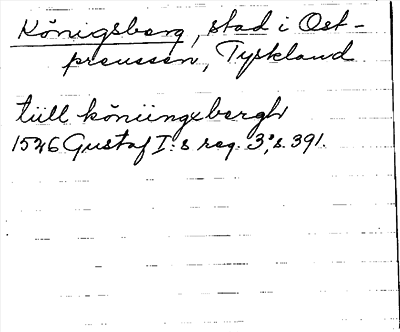 Königsberg, stad i Ost-
preussen, Tyskland
tiill köniingxbergh
1526 Gustaf I:s reg. 3, s. 391.